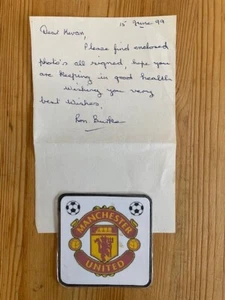 15th June 99
Dear Kevan,
Please find enclosed
photo's all signed, hope you
are keeping in good health
Wishing you very
best wishes,
Ron
MANCHESTER
UNITED